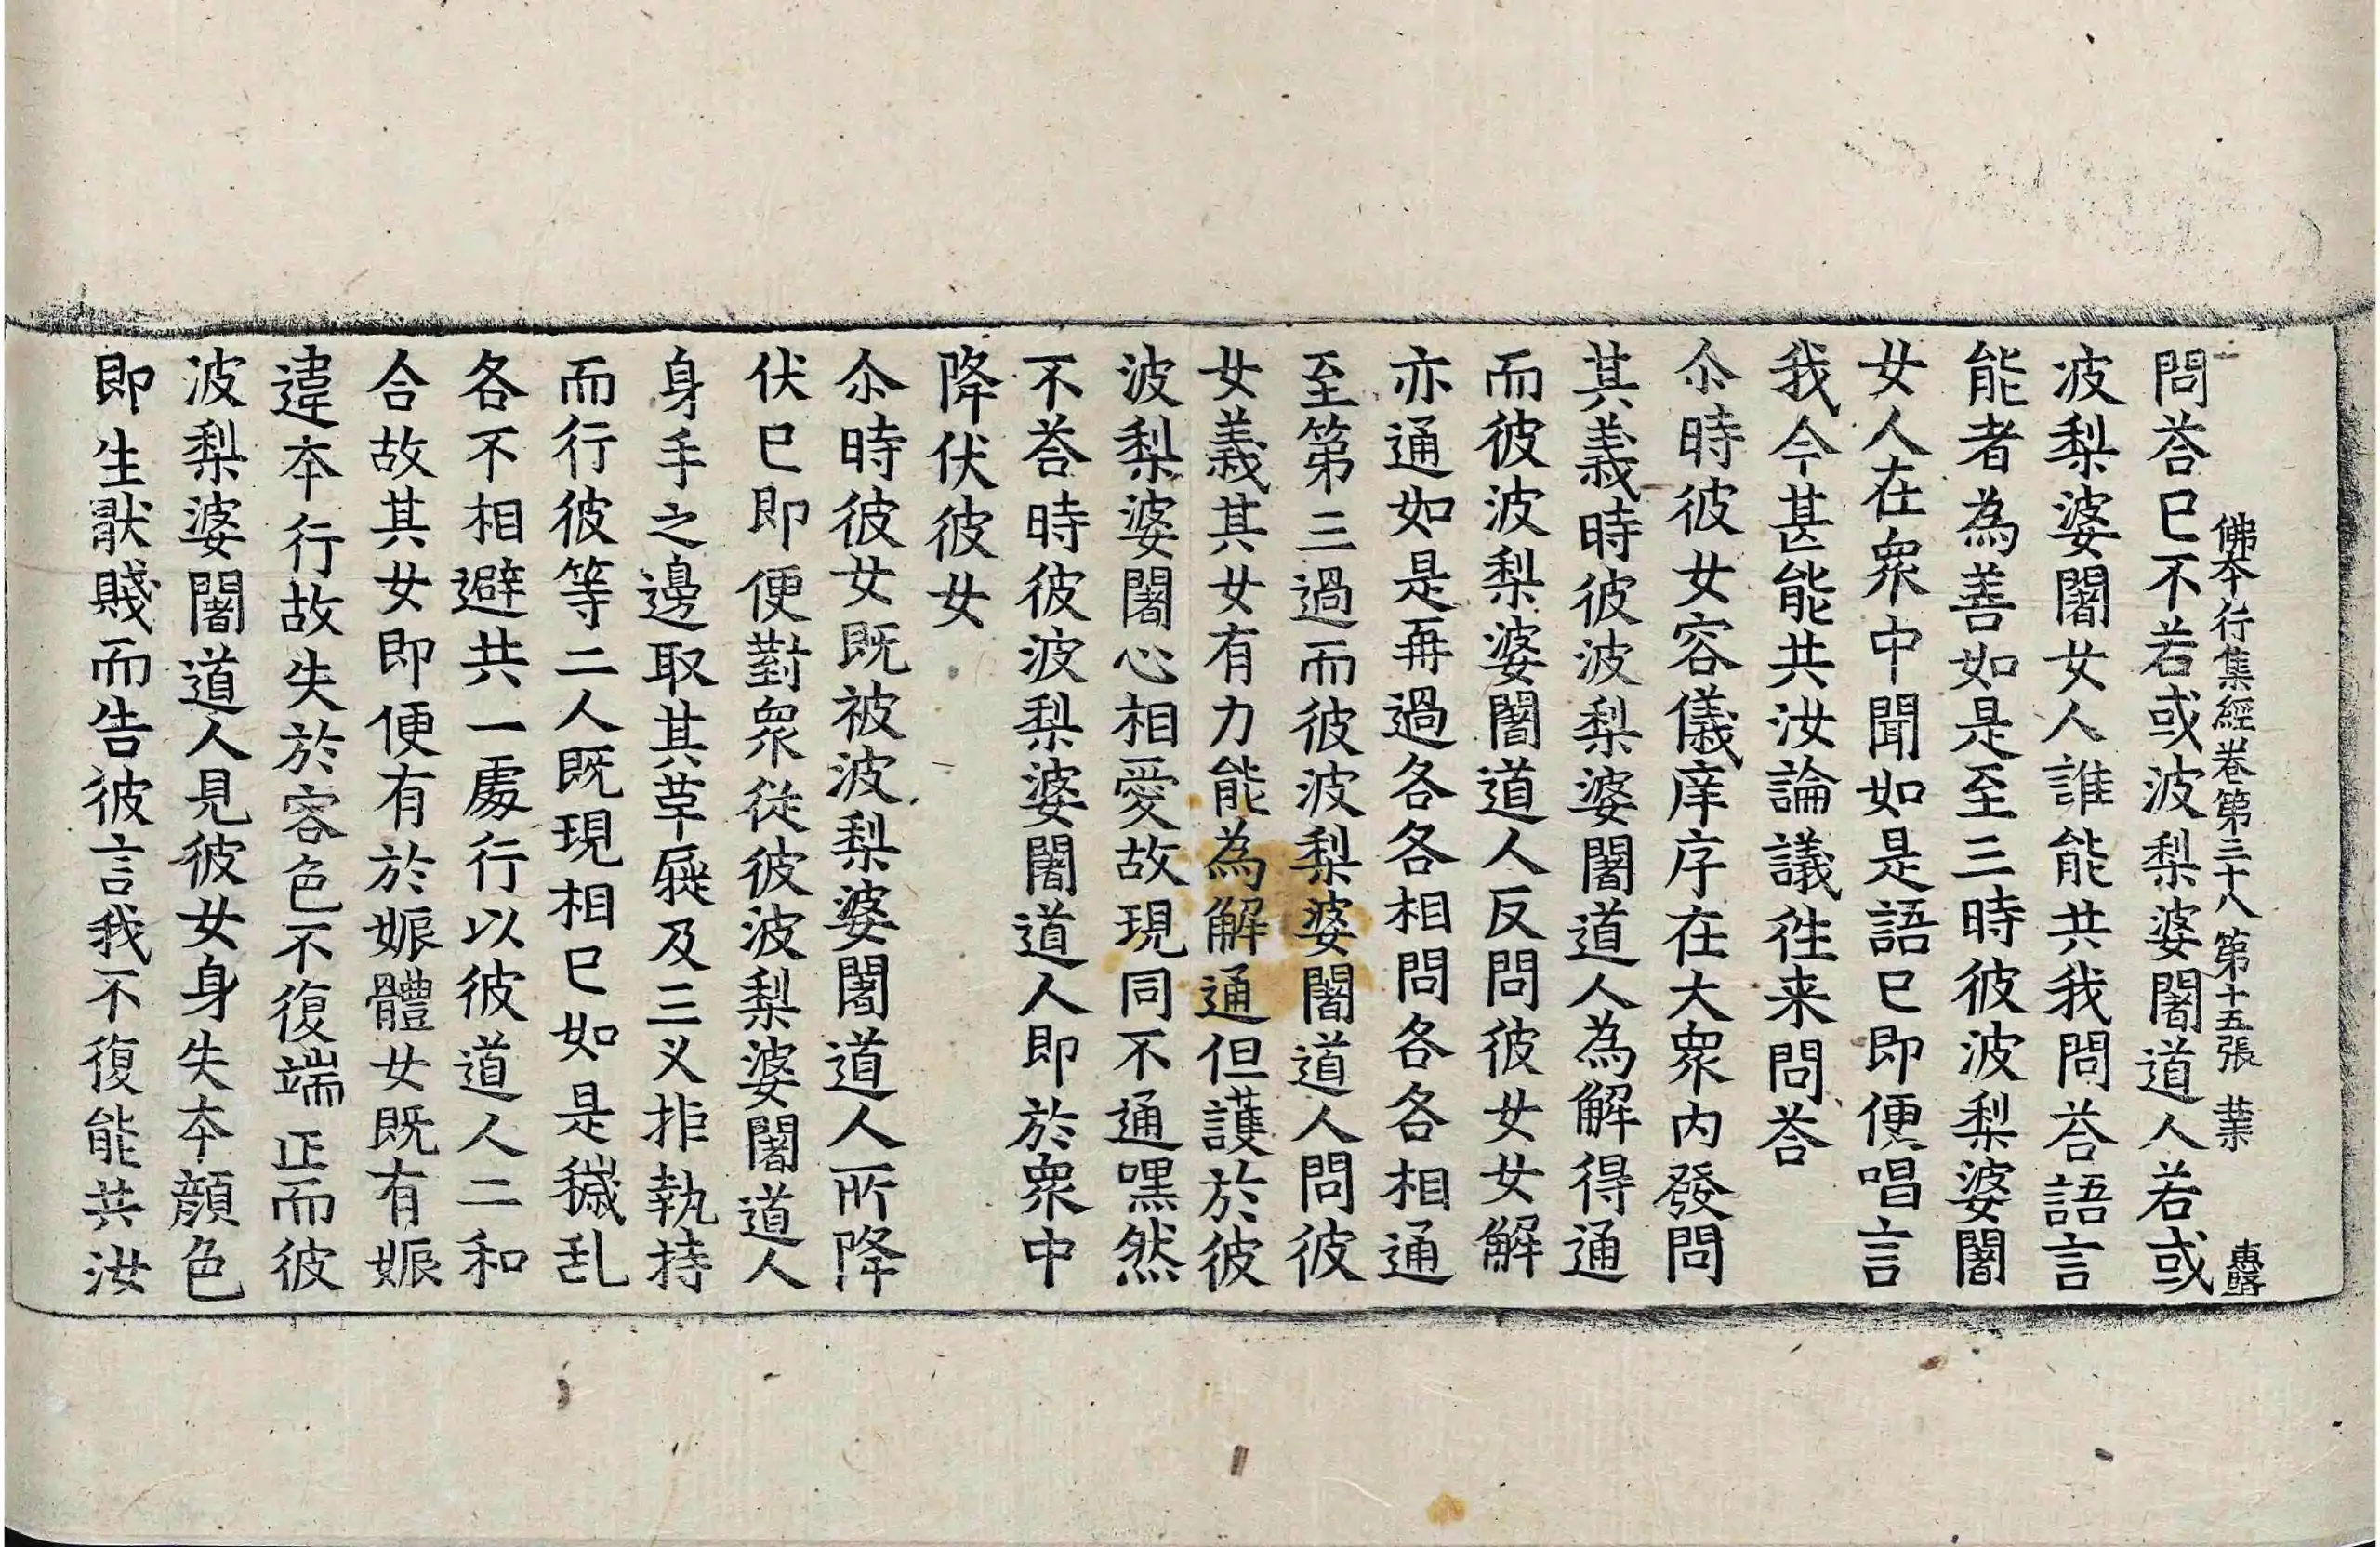 佛本行集經卷第三十八 第十五張 業
問荅已不若或波梨婆闍道人若或
波梨婆闍女人誰能共我問荅語言
能者為善如是至三時彼波梨婆闍
女人在衆中聞如是語已即便唱言
我今甚能共汝論議徃来問荅
尒時彼女容儀庠序在大衆内發問
其義時彼波梨婆闍道人為解得通
而彼波梨婆闍道人反問彼女女解
亦通如是再過各各相問各各相通
至第三過而彼波梨婆闍道人問彼
女義其女有力能為解通但護於彼
波梨婆闍心相愛故現同不通嘿然
不荅時彼波梨婆闍道人即於衆中
降伏彼女
尒時彼女既被波梨婆闍道人所降
伏已即便對衆從彼波梨婆闍道人
身手之邊取其草屣及三义拒執持
而行彼等二人既現相已如是穢乱
各不相避共一處行以彼道人二和
合故其女即便有於娠體女既有娠
違本行故失於容色不復端正而彼
波梨婆闍道人見彼女身失本顔色
即生猒賤而告彼言我不復能共汝